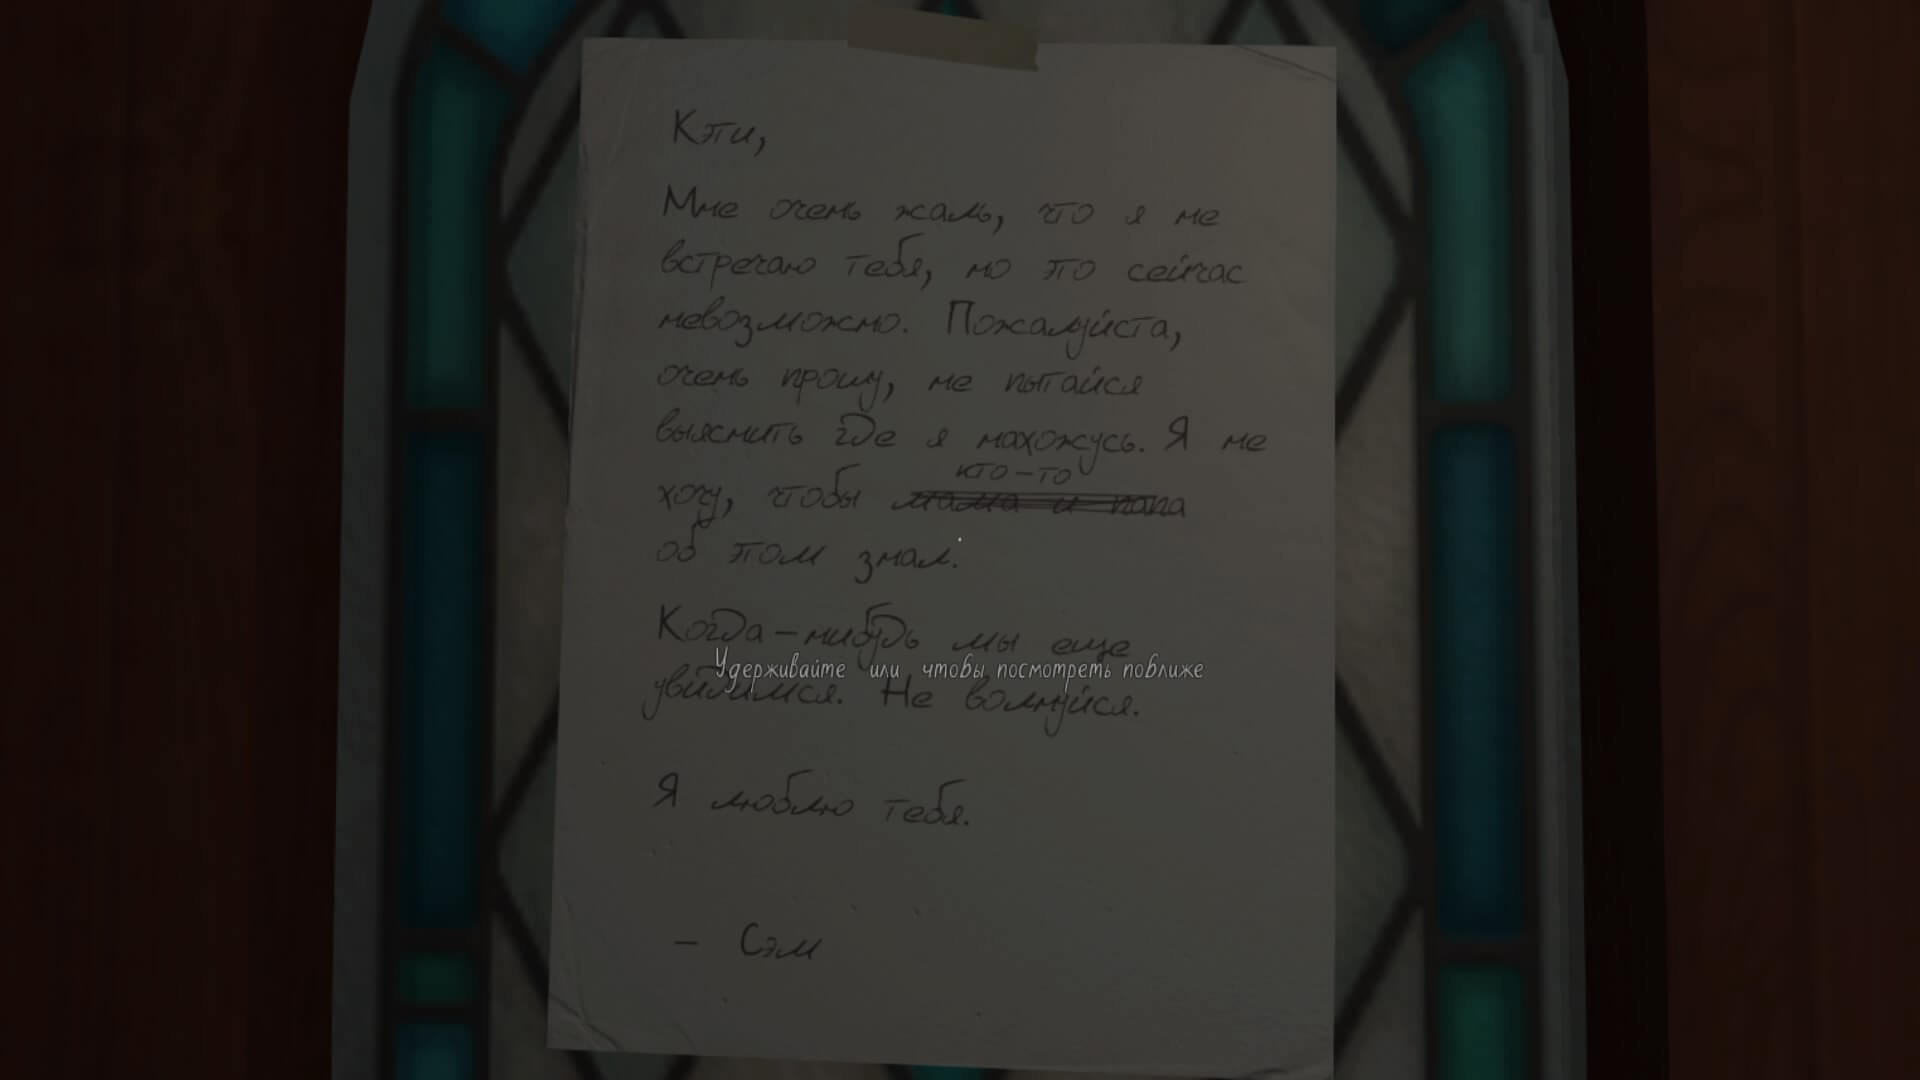 Кэти,
Мне очень жаль, что я не
встречаю тебя, но это сейчас
невозможно. Пожалуйста,
очень прошу, не пытайся
выяснить где я нахожусь. Я не
кто-то
хочу, чтобы мама и папа
об этом знал.
Когда-нибудь мы еще
Удерживайте или чтобы посмотреть поближе
увидимся. Не волнуйся.
Я люблю тебя.
- Сэм